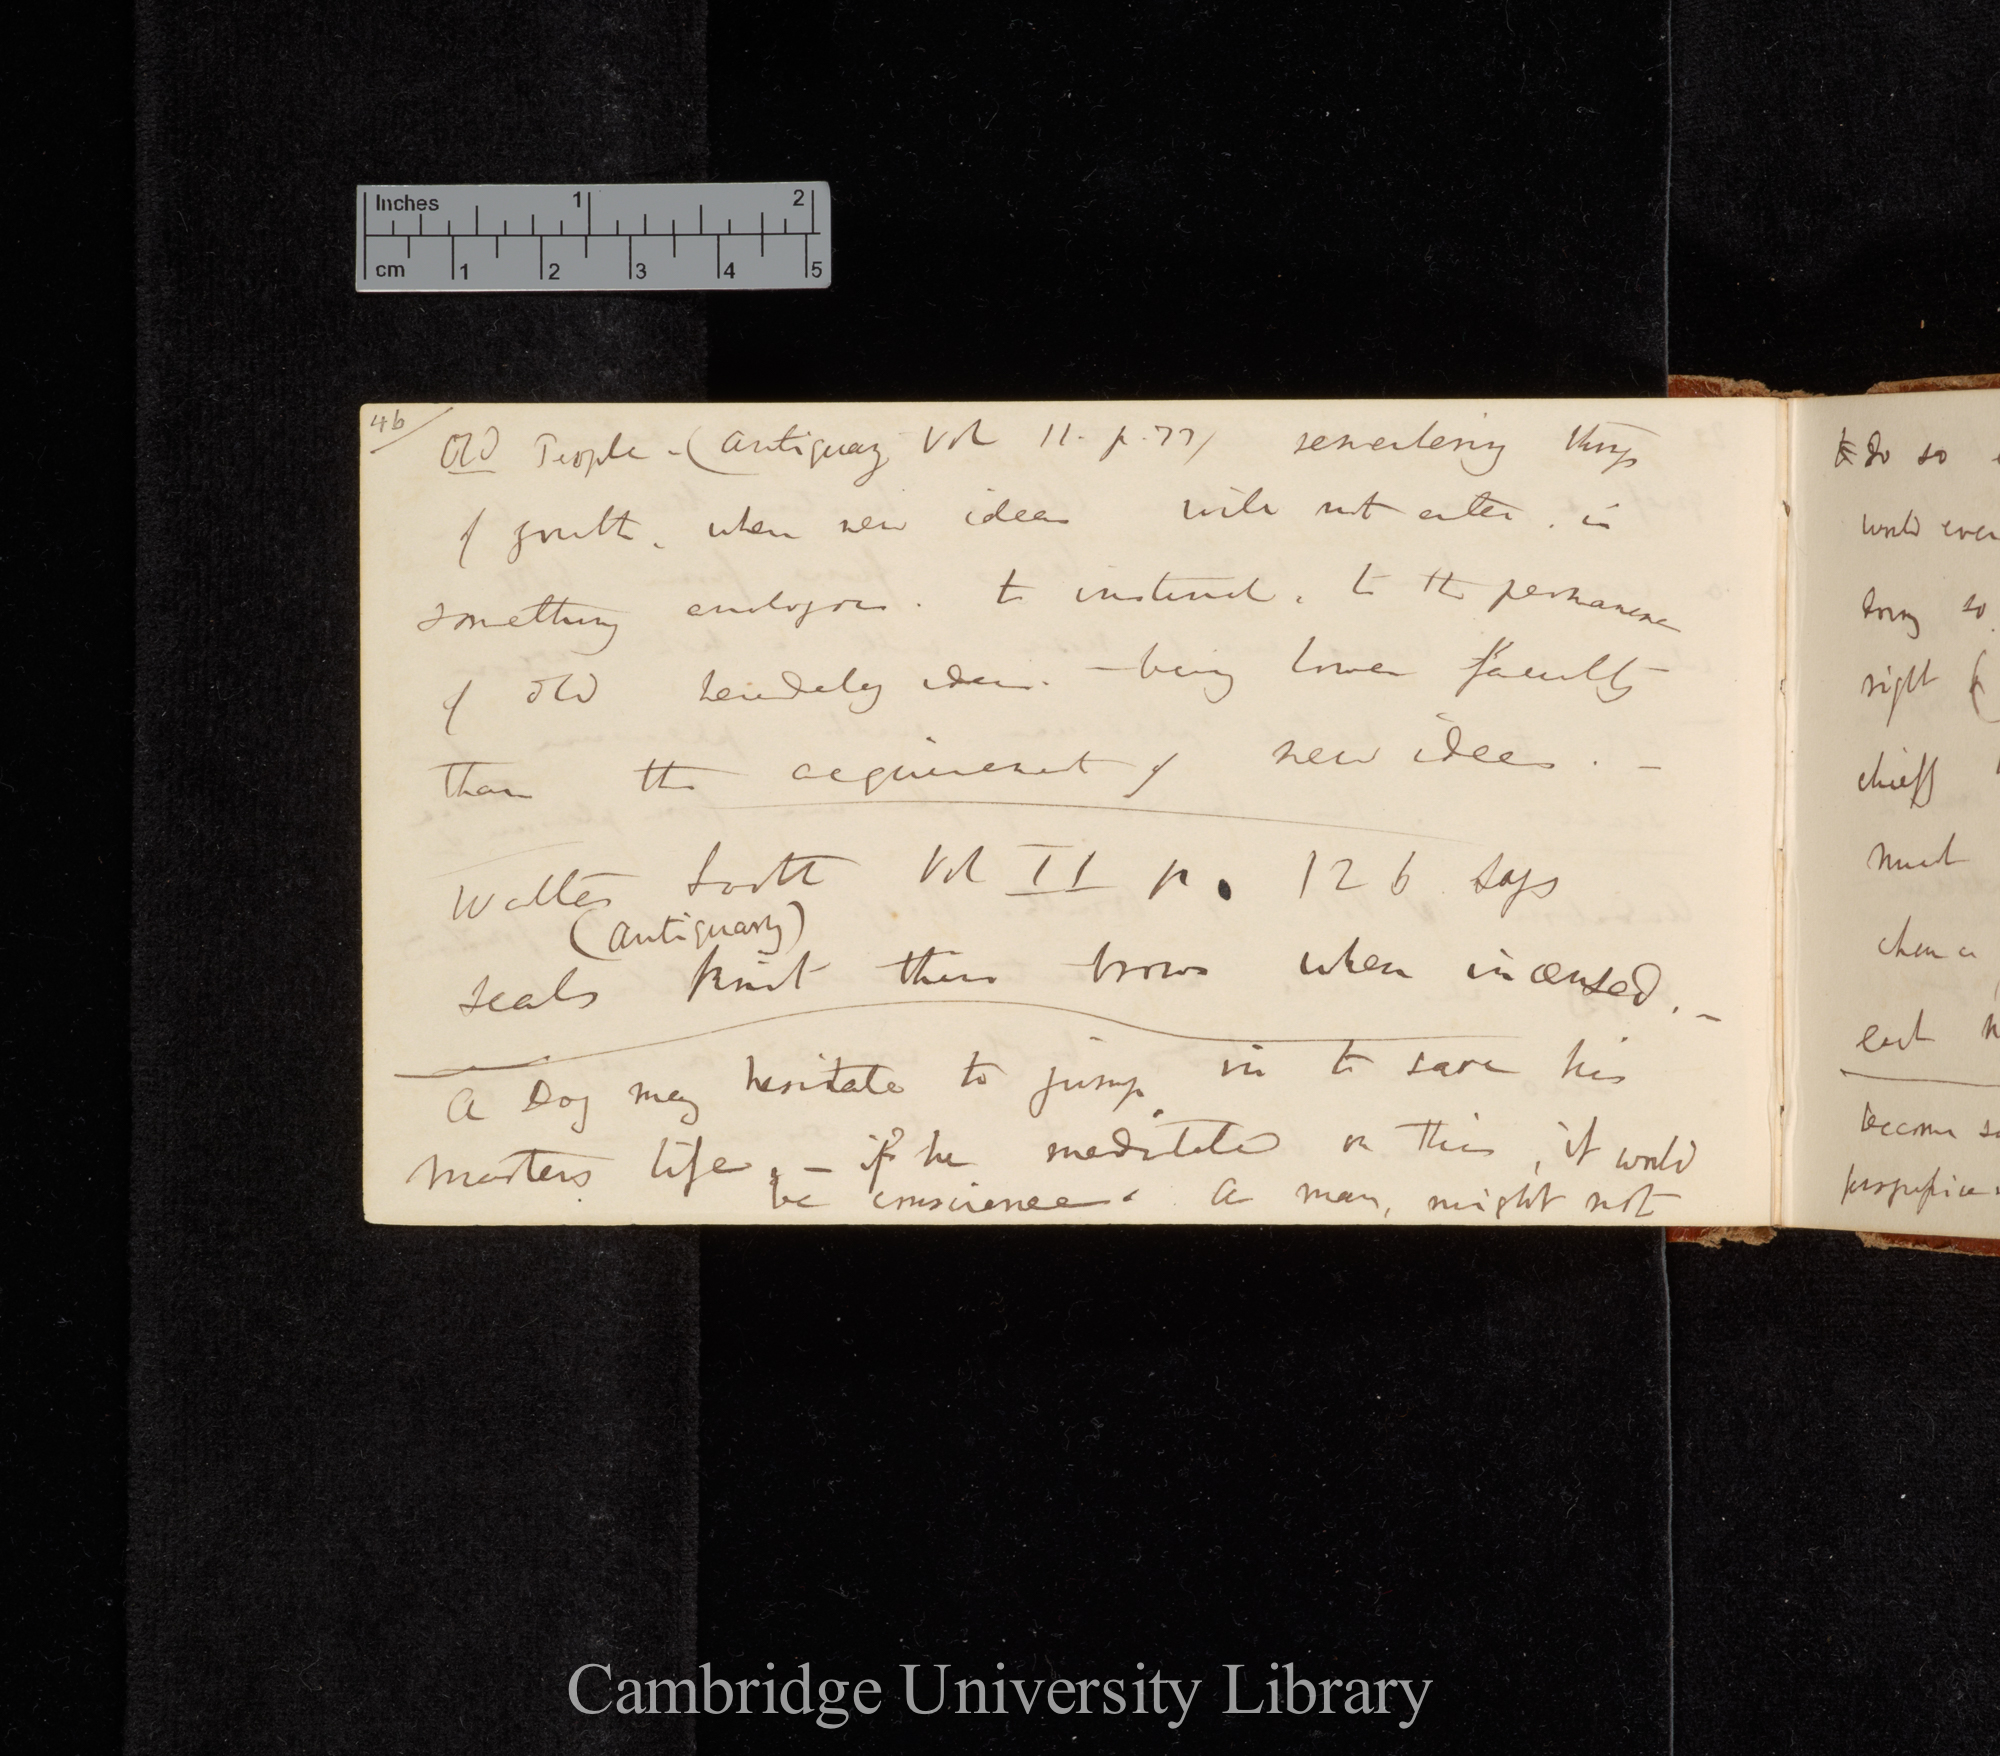 Inches 1 2
cm 1 2 3 4 5
46
Old People - (Antiquary Vol II. p. 77) remembering things
of youth, when new ideas will not enter. is
something analogous. to instinct, to the permanence
of old heredetary ideas. - being lower faculty
than the acquirement of new ideas. -
Walter Scott Vol II p. 126 says
(Antiquary)
seals knit their brows when incensed. -
A Dog may hesitate to jump in to save his
masters life, - if he meditated on this, it would
be conscience. A man, might not
do so
would even
doing so
right (
chief
must
become
Cambridge University Library